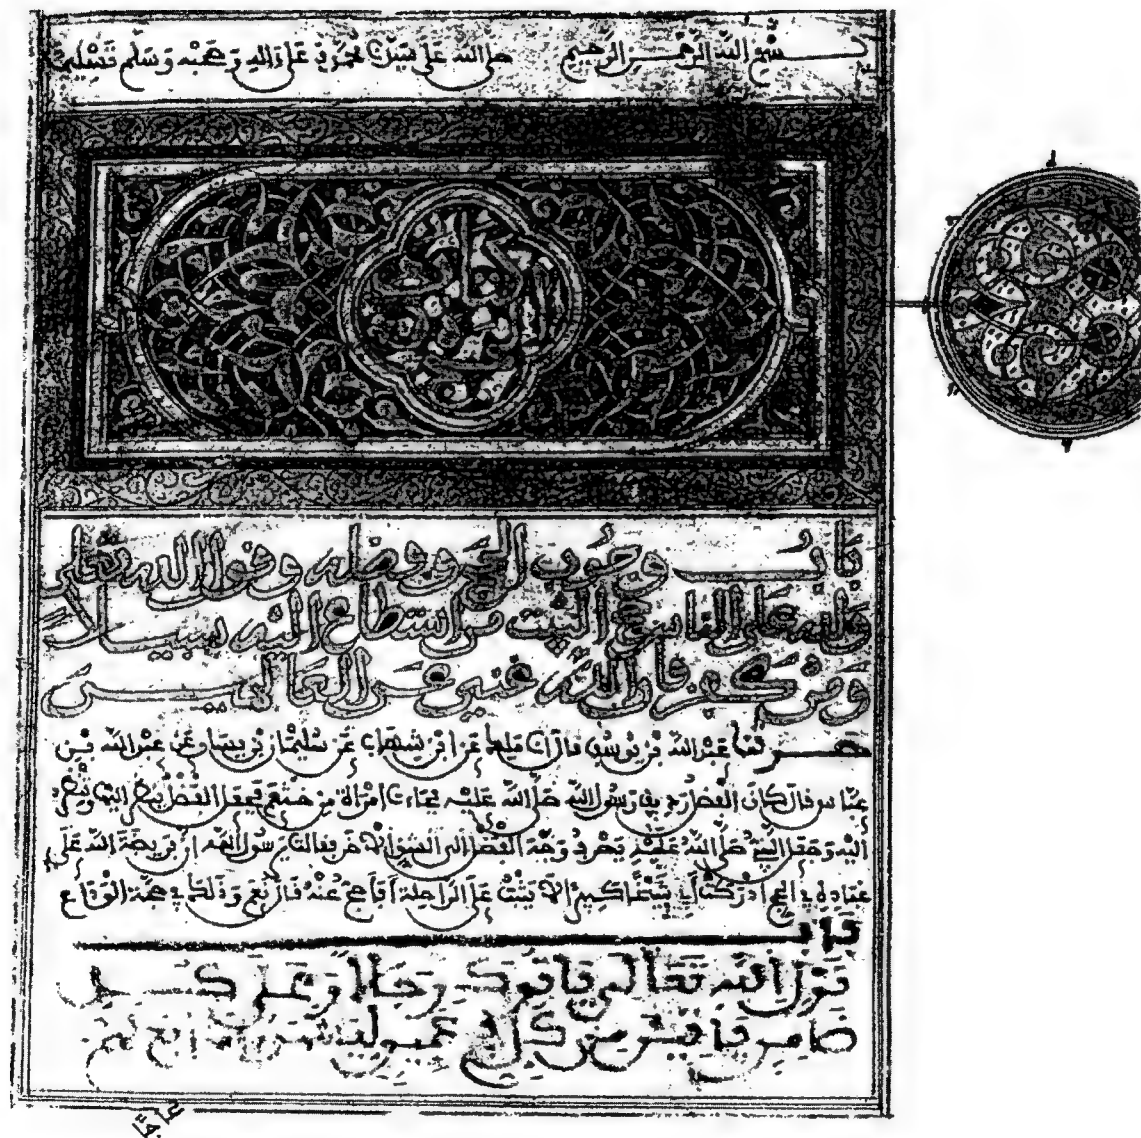 بسم الله الرحمن الرحيم صلى الله على سيدنا محمد وعلى ءاله وصحبه وسلم تسليما
كتاب
باب وجوب الحج وفضله وقول الله تعالى
ولله على الناس حج البيت من استطاع اليه سبيلا
ومن كفر فان الله غني عن العالمين
حدثنا عبد الله بن يوسف قال انا ملك عن ابن شهاب عن سليمان بن يسار عن عبد الله بن
عباس قال كان الفضل رديف رسول الله صلى الله عليه فجاءت امرأة من خثعم فجعل الفضل ينظر اليها وتنظر
اليه وجعل النبي صلى الله عليه يصرف وجه الفضل الى الشق الاخر فقالت يرسول الله ان فريضة الله على
عباده في الحج ادركت ابي شيخا كبيرا لا يثبت على الراحلة أفأحج عنه قال نعم وذلك في حجة الوداع
باب
قول الله تعالى ياتوك رجالا وعلى كل
ضامر ياتين من كل فج عميق ليشهدوا منافع لهم